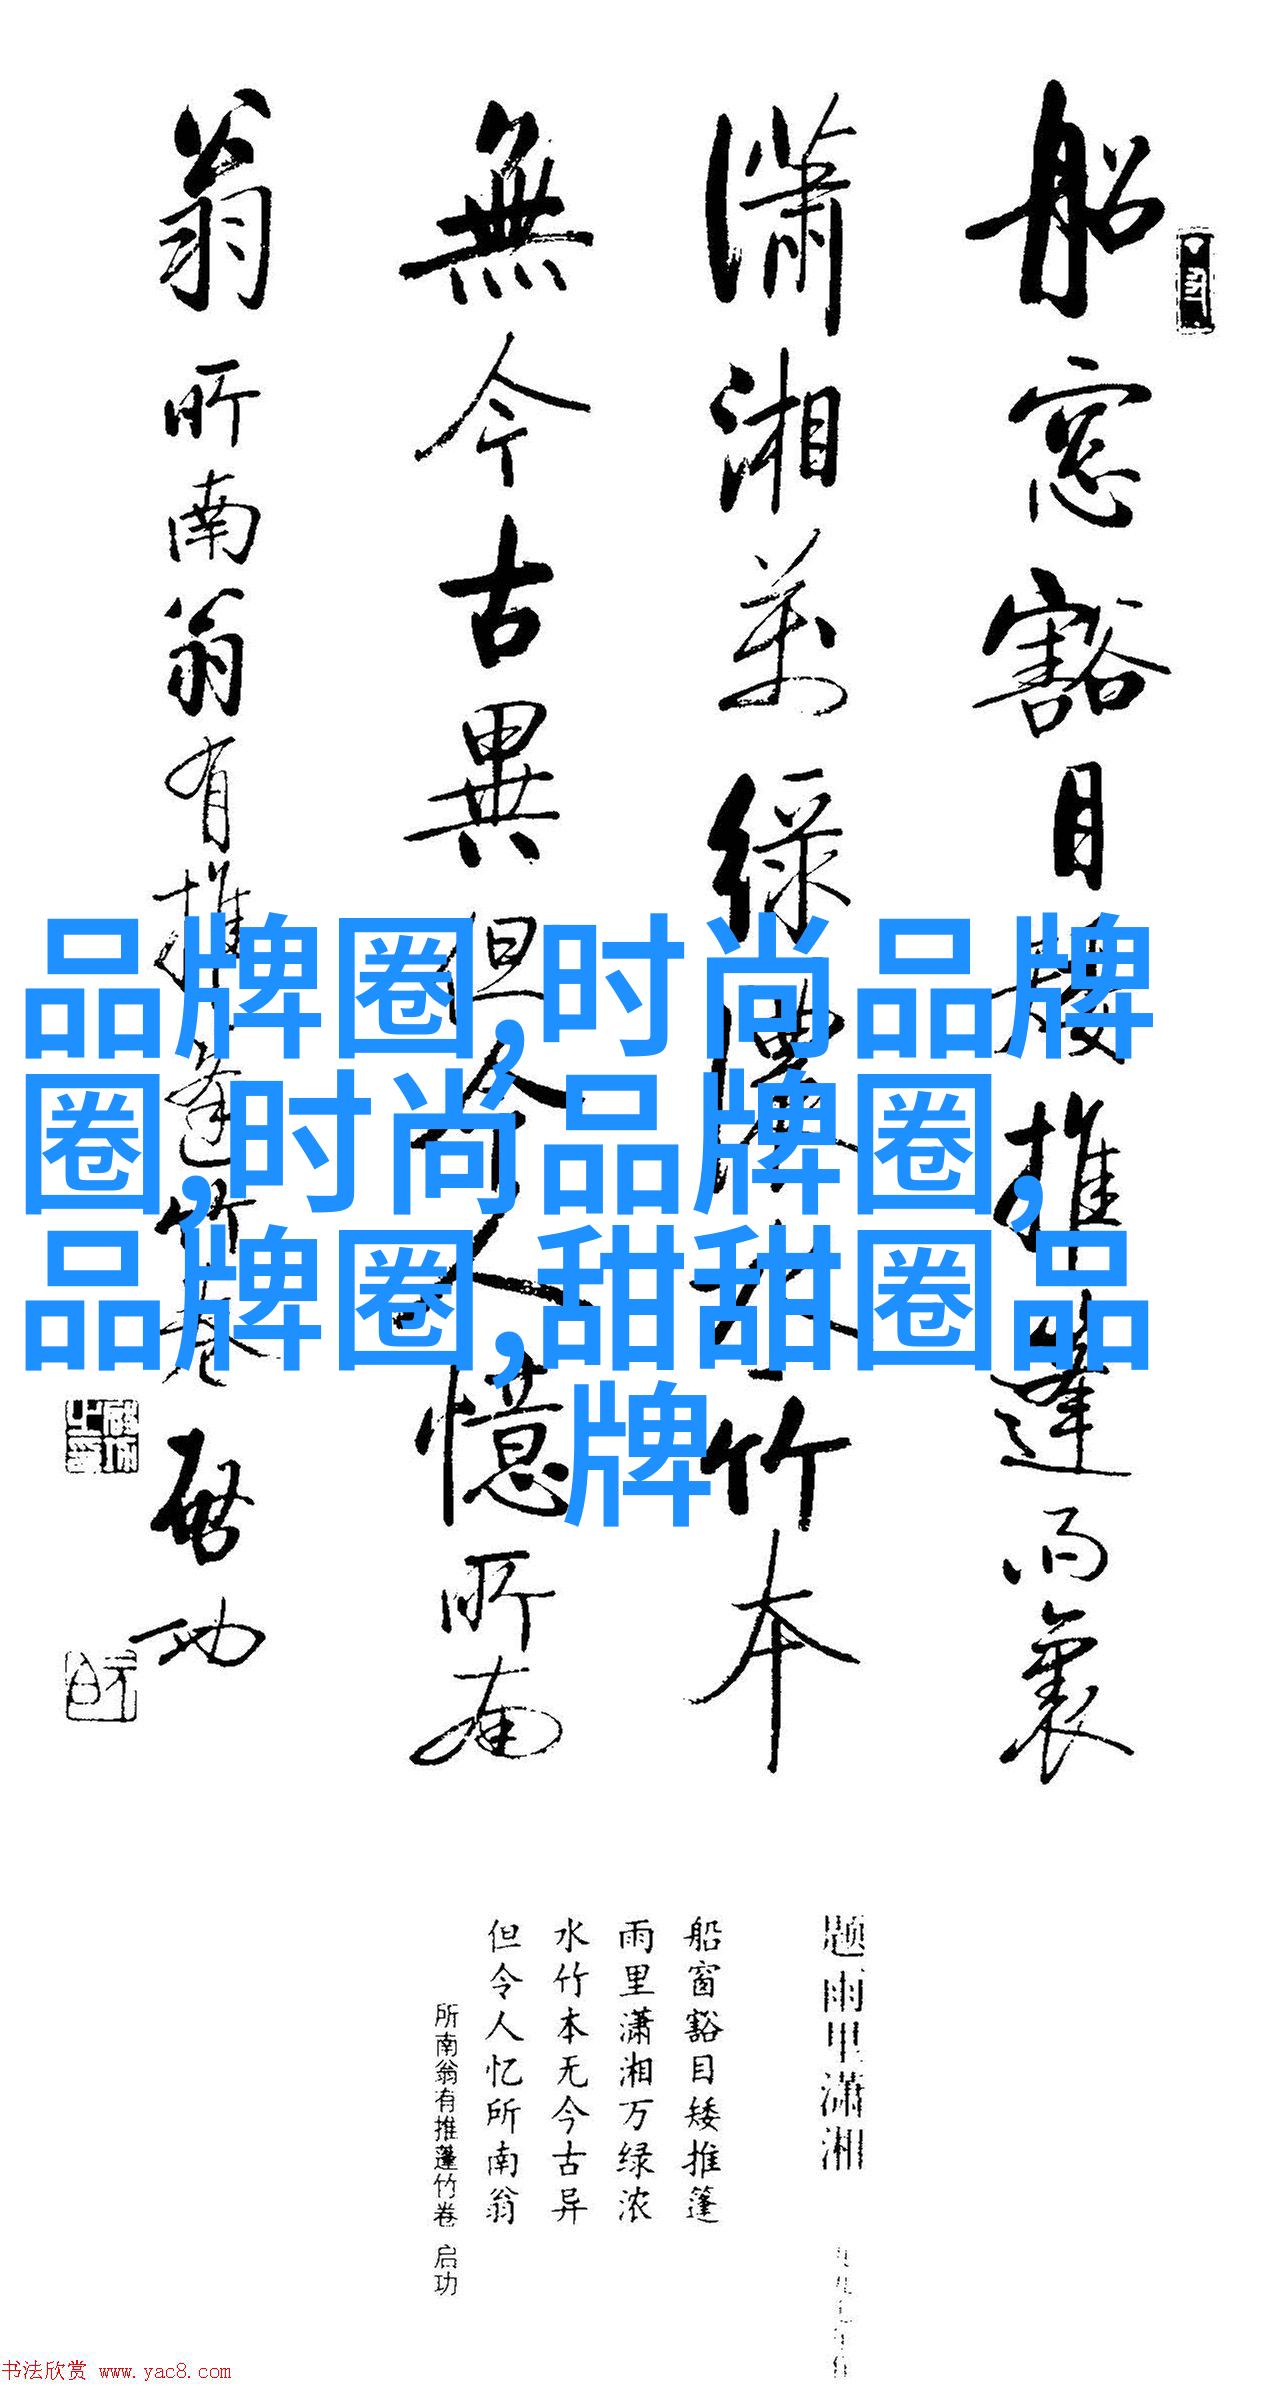 船窓豁目矮推篷雨裏
瀟湘萬緑濃水竹本
無今古異但令人憶所南
翁
所南翁有推篷竹卷 启功
品牌圈,时尚品牌
圈,时尚品牌圈,
品牌圈,甜甜圈品
牌
题雨里潇湘
船窗豁目矮推篷
雨里潇湘万绿浓
水竹本无今古异
但令人忆所南翁
所南翁有推蓬竹卷 启功
书法欣赏 www.yac8.com